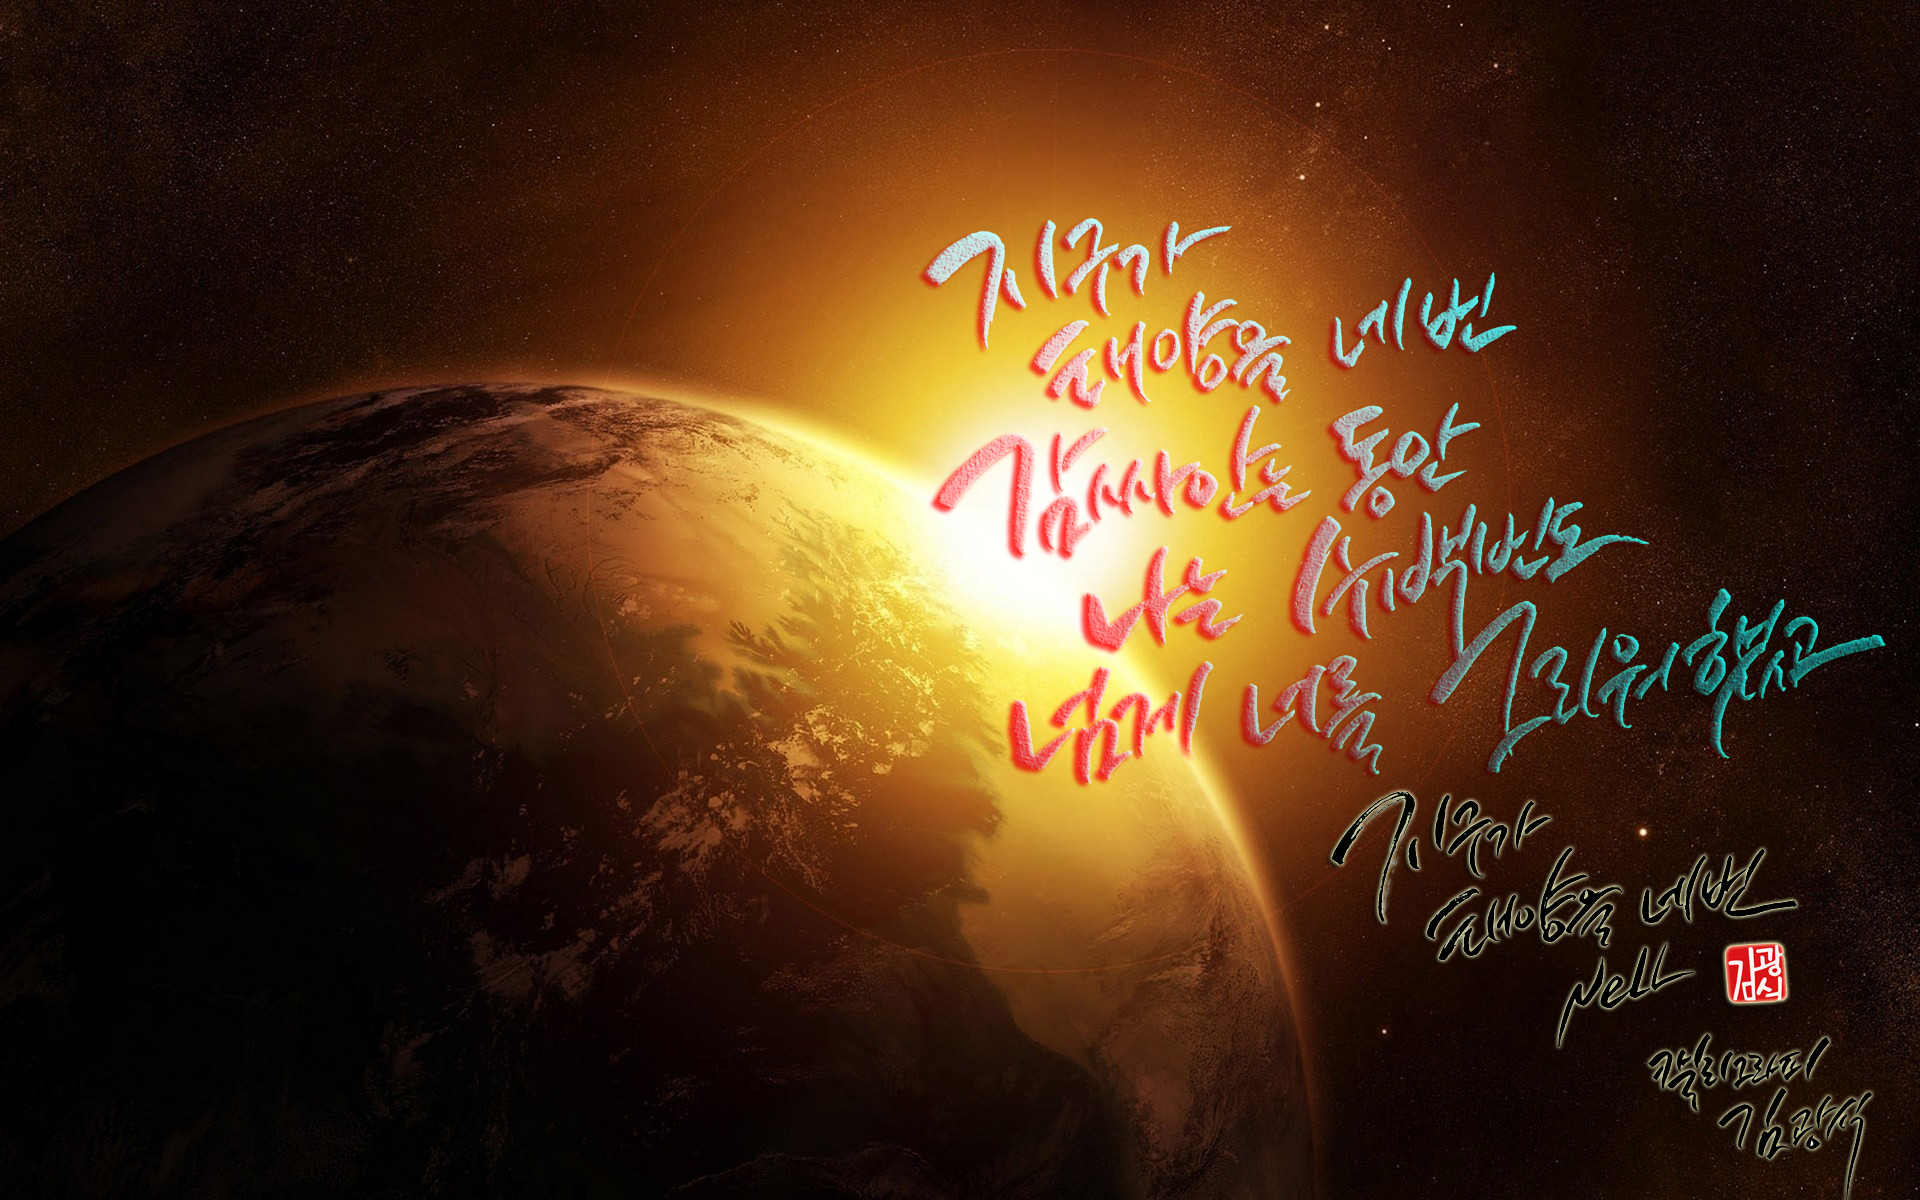 지구가
태양을 네번
감싸안는 동안
나는 수백번도
넘게 너를 그리워했고
지구가
태양을 네번
Nell
김광석
캘리그라피
김광석